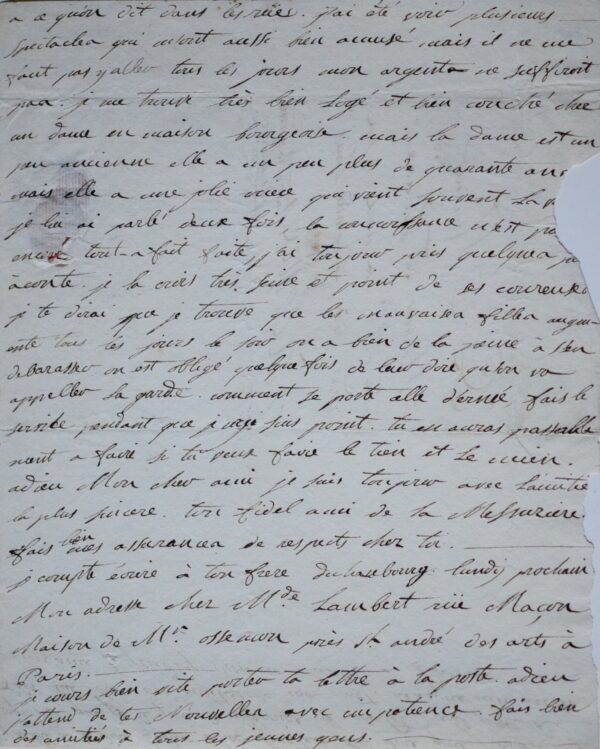 a ce qu'on dit dans les rües. j'ai été voir plusieurs
spectacles qui m'ont aussi bien amusé mais il ne me
faut pas y aller tous les jours mon argent ne suffiroit
pas. je me trouve très bien logé et bien couché chez
un dame en maison bourgeoise. mais la dame est un
peu ancienne elle a un peu plus de quarante ans
mais elle a une jolie niece qui vient souvent la
je lui ai parlé deux fois, la connoissance n'est
encore tout-a-fait faite, j'ai toujour pris quelques
àconte. je la crois très fine et point de ses coureuse
je te dirai que je trouve que les mauvaises filles augm-
ente tous les jours le soir on a bien de la peine à s'en
debarasser on est obligé quelque fois de leur dire qu'on va
appeller la garde. comment se porte elle d'ernée fais le
service pendant que j'y suis point. tu en auras passable
ment a faire si tu veux faire le tien et le mien.
adieu Mon cher ami je suis toujour avec l'amitie
la plus sincere. ton fidel ami de la Messuziere
fais bien mes assurances de respects chez toi.
je compte écrire à ton frere lundy prochain
Mon adresse chez Mde Lambert rüe Maçon
Maison de Mr près St andré des arts à
Paris.
je cours bien vite porter ta lettre à la poste. adieu
j'attend de tes Nouvelles avec impatience. fais bien
des amitiés à tous les jeunes gens.